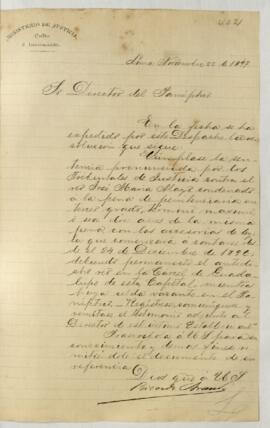 MINISTERIO DE JUSTICIA,
Culto
É INSTRUCCIÓN.
Lima, Noviembre 22 de 1897
Sr Director del Panóptico
En la fecha se ha
expedido por este Despacho la re
solucion que sigue:
"Cúmplase la sen
tencia pronunciada por los
Tribunales de Justicia contra el
reo José Maria condenado
a la pena de penitenciaria en
tercer grado, término maximo
ó sea doce años de la misma
pena con las accesorias de ley
la que comenzará a contarse des
de el 24 de Diciembre de 189
debiendo permanecer el antedi
cho reo en la Carcel de Guada
lupe de esta Capital, mientras
haya celda vacante en el Pa
nóptico. Regístrese, comuníquese y
remítase el testimonio adjunto al
Director de ese último Establecimiento"
Trascríbola á US para su
conocimiento y demás fines re
mitiéndole el documento de su
referencia.
Dios gue á US
Ricardo